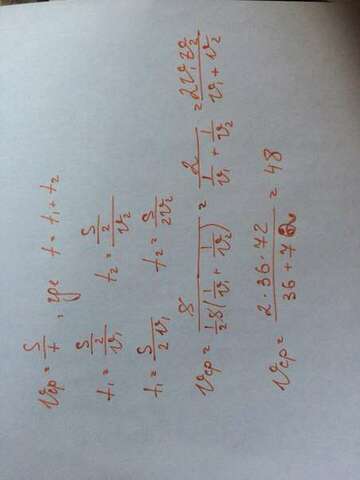 υср = S/t , где t = t₁ + t₂
t₁ = (S/2)/υ₁ t₂ = (S/2)/υ₂
t₁ = S/(2υ₁) t₂ = S/(2υ₂)
υср = S/(½S(1/υ₁ + 1/υ₂)) = 2/(1/υ₁ + 1/υ₂) = 2υ₁υ₂/(υ₁ + υ₂)
υср = (2·36·72)/(36 + 72) = 48